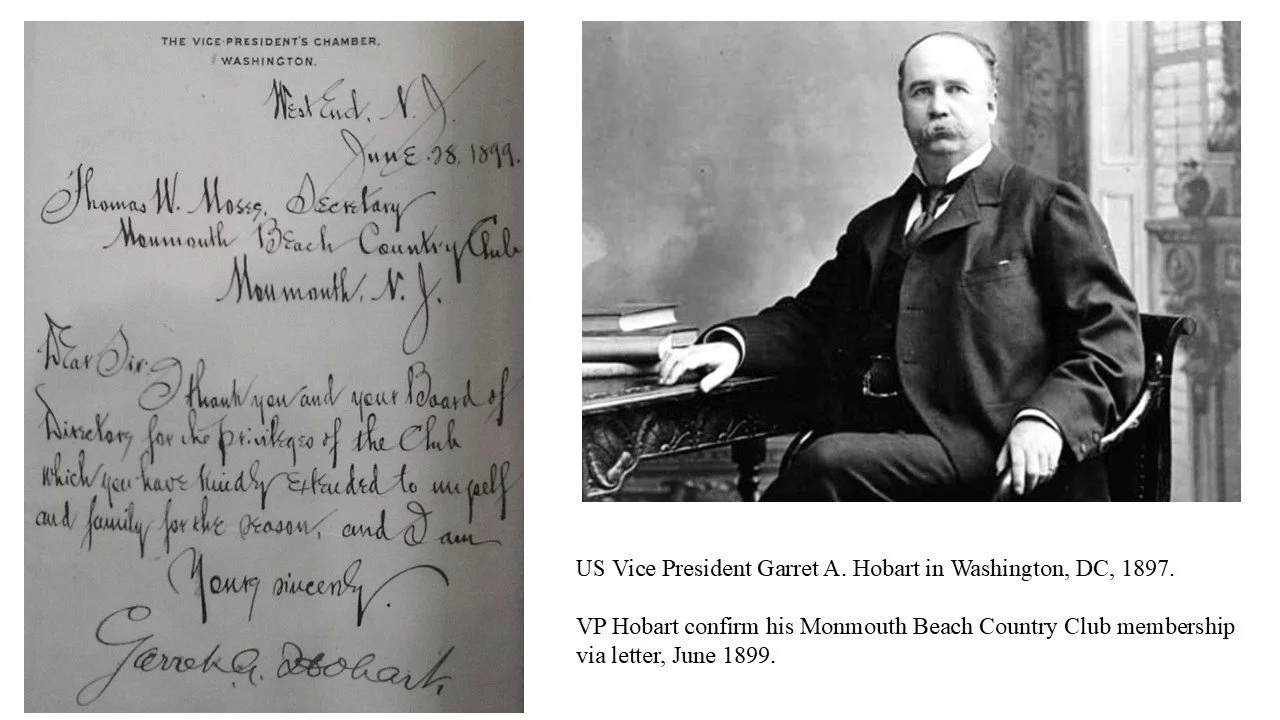 THE VICE-PRESIDENT'S CHAMBER,
WASHINGTON.
West End, N. J.
June 28, 1899.
Thomas W. Moses, Secretary
Monmouth Beach Country Club
Monmouth, N. J.
Dear Sir:
I thank you and your Board of
Directors for the privileges of the Club
which you have kindly extended to myself
and family for the season, and I am
Yours sincerely.
Garret A. Hobart.
US Vice President Garret A. Hobart in Washington, DC, 1897.
VP Hobart confirm his Monmouth Beach Country Club membership
via letter, June 1899.